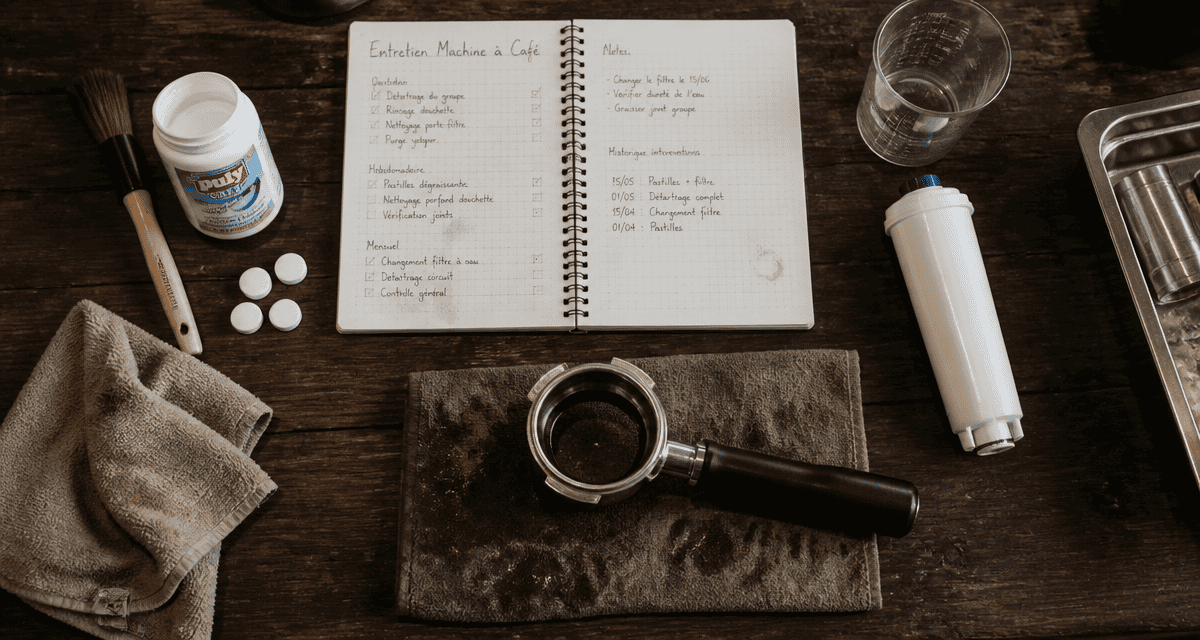 Entretien Machine à Café
Quotidien
Détartrage du groupe
Rinçage douchette
Nettoyage porte filtre
Purge
Hebdomadaire
Pastilles dégraissante
Nettoyage porfond douchette
Vérification joints
Mensuel
Changement filtre à eau
Détartrage circuit
Contrôle général
Notes.
- Changer le filtre le 15/06
- Vérifier dureté de l'eau
- Graisser joint groupe
Historique interventions
15/05 : Pastilles + filtre
01/05 : Détartrage complet
15/04 : Changement filtre
01/04 : Pastilles
puly